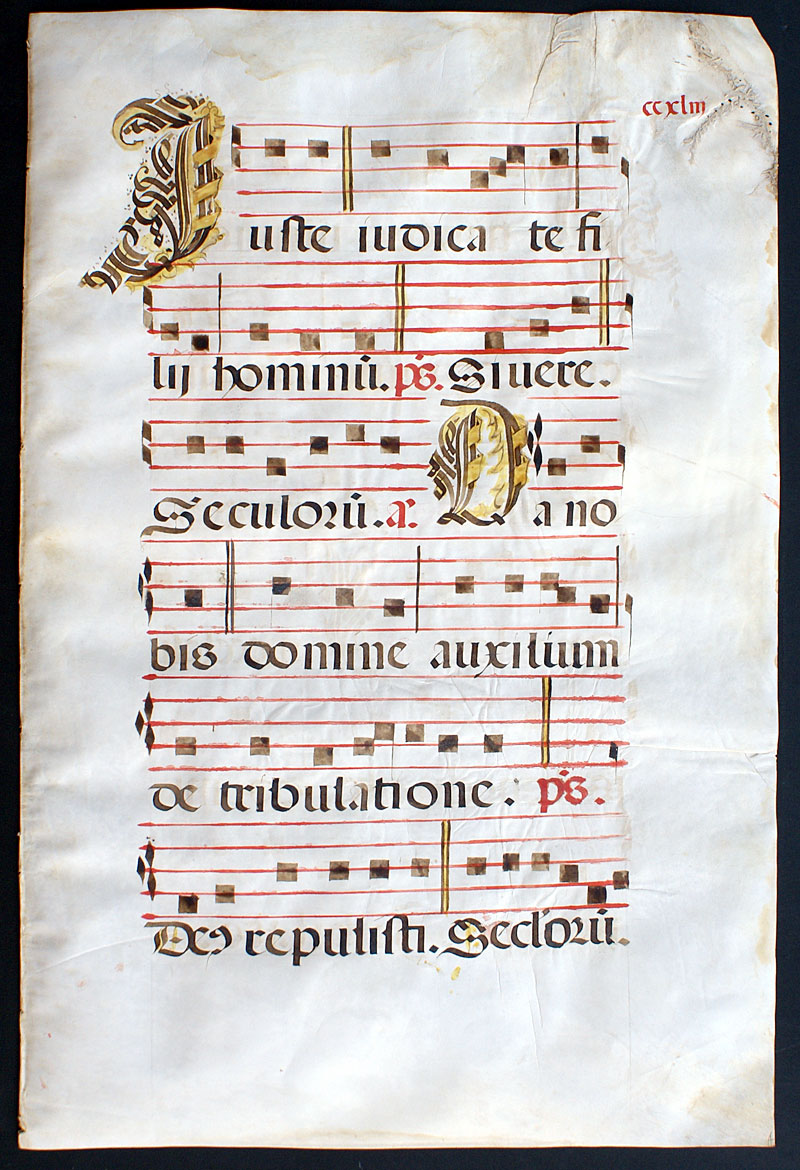 ccxlııı
Iuste iudica te fi
lij hominū. ps. Si uere.
Seculorū. a. Da no
bis domine auxilium
de tribulatione. ps.
Deꝯ repulisti. Seclorū.